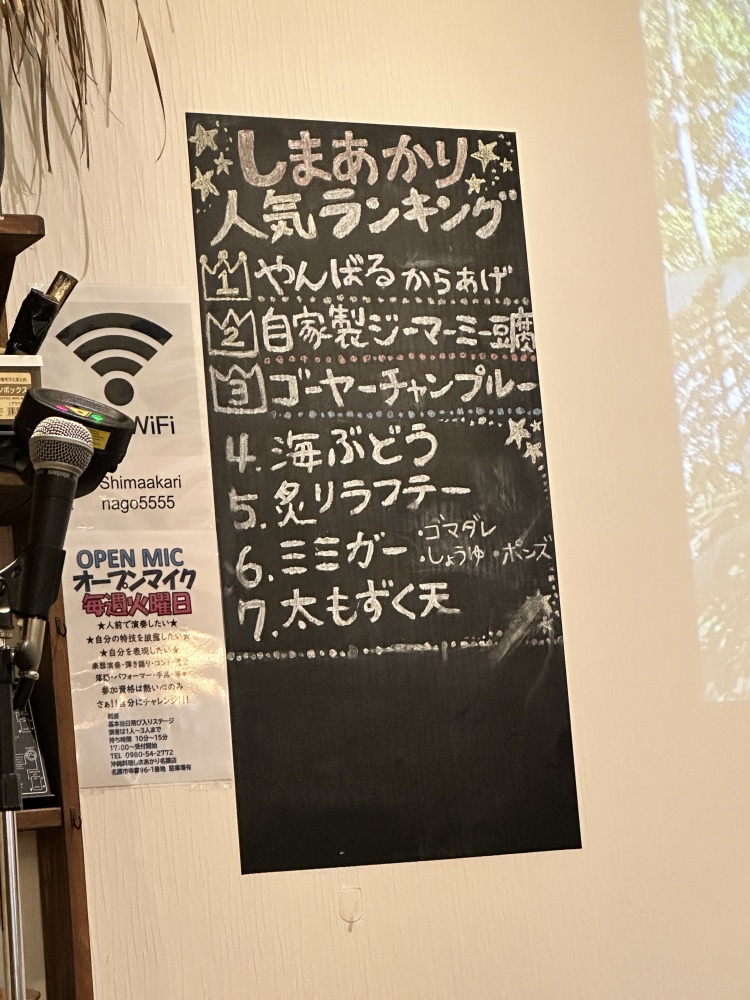 しまあかり
人気ランキング
1 やんばるからあげ
2 自家製ジーマーミー豆腐
3 ゴーヤーチャンプルー
4. 海ぶどう
5. 炙りラフテー
6. ミミガー ・ゴマダレ
・しょうゆ ・ポンズ
7. 太もずく天
WiFi
Shimaakari
nago5555
OPEN MIC
オープンマイク
毎週火曜日
★人前で演奏したい★
★自分の特技を披露したい★
★自分を表現したい★
楽器演奏・弾き語り・コント・漫才
落語・パフォーマー・手品・等々
参加資格は熱い心のみ
さぁ!!自分にチャレンジ!!!
概要
基本当日飛び入りステージ
演者は1人～3人まで
持ち時間 10分～15分
17:00～受付開始
TEL 0980-54-2772
沖縄料理しまあかり名護店
名護市幸喜96-1番地 駐車場有